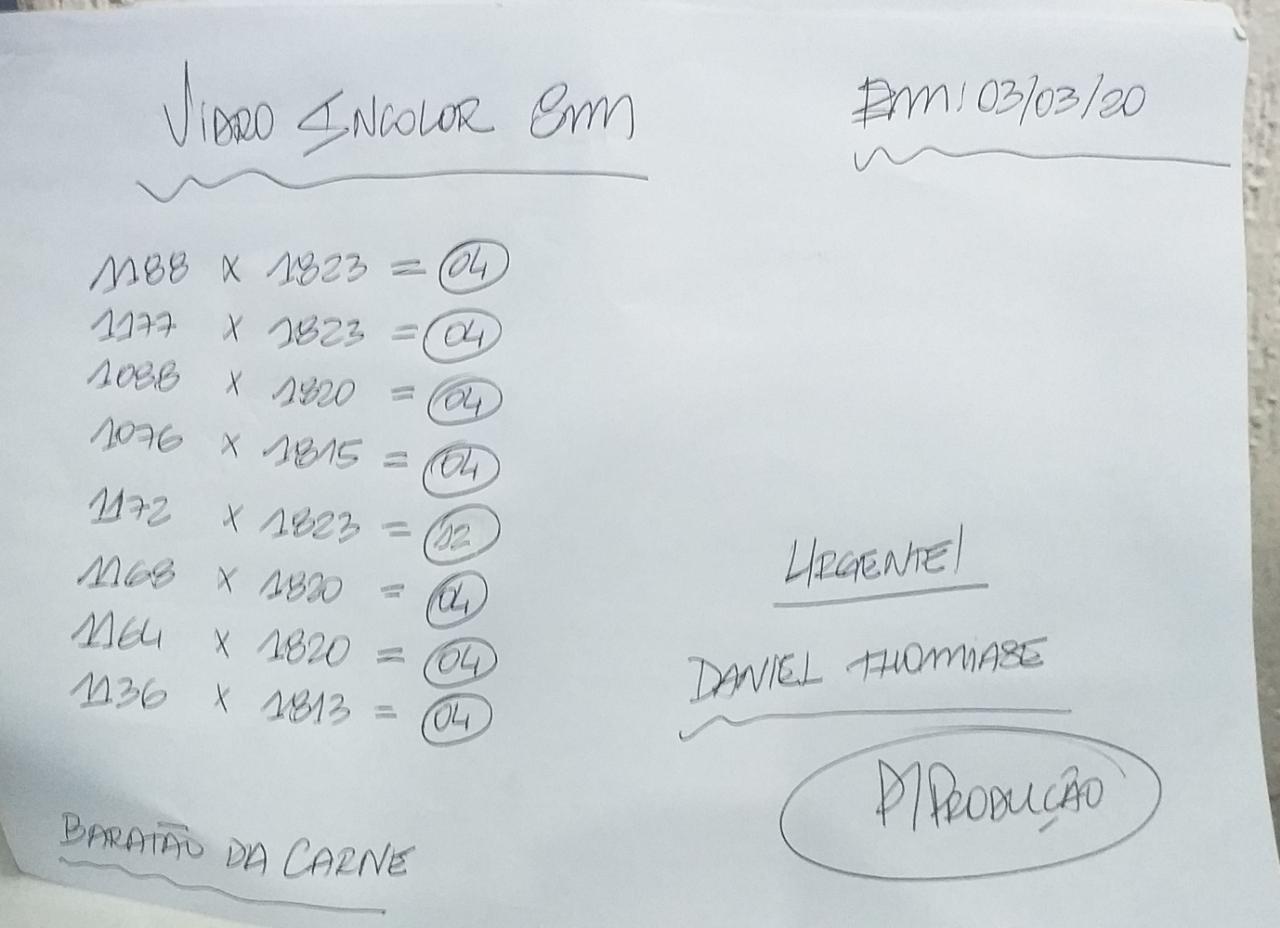 VIDRO INCOLOR 8mm
Em: 03/03/20
1188 x 1823 = 04
1177 x 1823 = 04
1088 x 1820 = 04
1076 x 1815 = 04
1172 x 1823 = 12
1168 x 1820 = 04
1164 x 1820 = 04
1136 x 1813 = 04
URGENTE!
DANIEL
P/PRODUÇÃO
BARATÃO DA CARNE